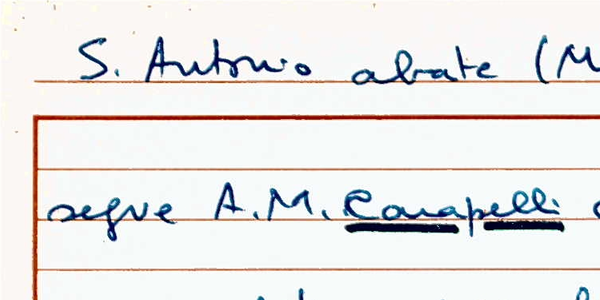 S. Antonio abate (M
segue A.M. Carapelli